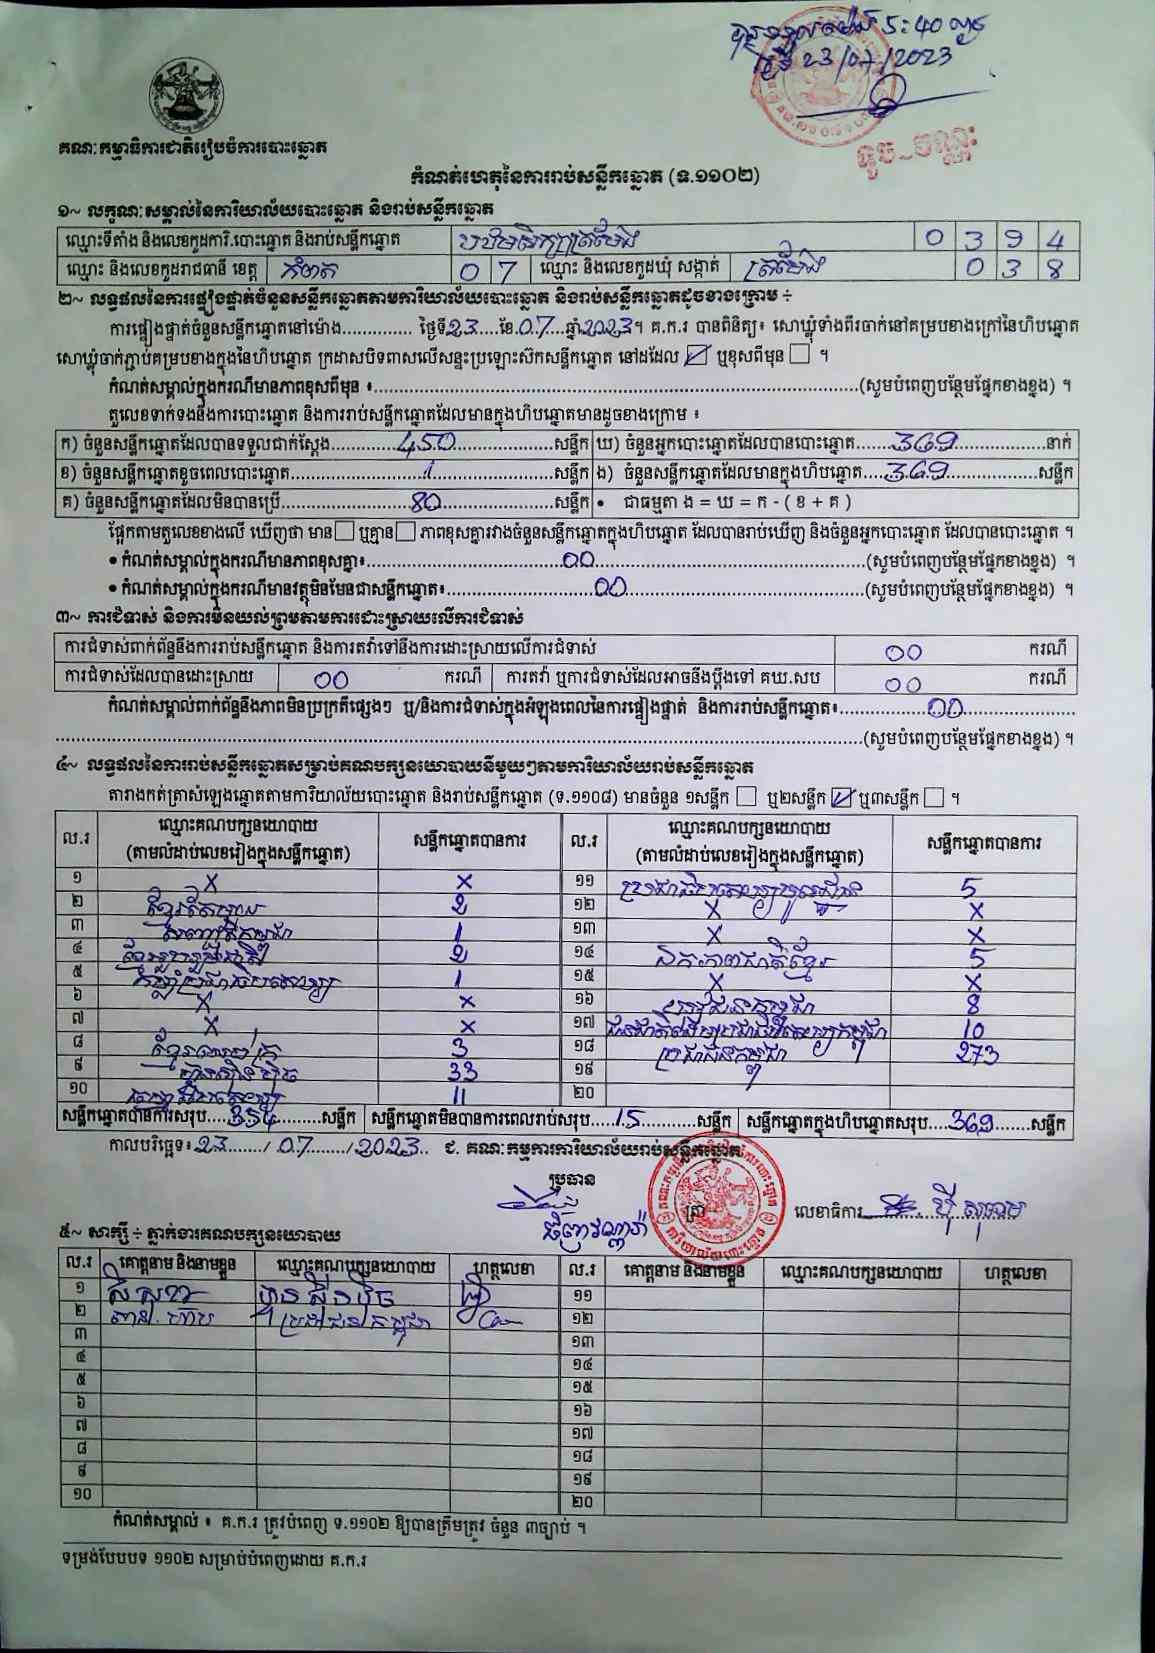 5:40
23/07/2023
គណៈកម្មាធិការជាតិរៀបចំការបោះឆ្នោត
កំណត់ហេតុនៃការរាប់សន្លឹកឆ្នោត (ទ.១១០២)
១~ លក្ខណៈសម្គាល់នៃការិយាល័យបោះឆ្នោត និងរាប់សន្លឹកឆ្នោត
ឈ្មោះទីតាំង និងលេខកូដការិ.បោះឆ្នោត និងរាប់សន្លឹកឆ្នោត 0 3 9 4
ឈ្មោះ និងលេខកូដរាជធានី ខេត្ត កំពត 0 7 ឈ្មោះ និងលេខកូដឃុំ សង្កាត់ ត្រមែង 0 3 8
២~ លទ្ធផលនៃការផ្ទៀងផ្ទាត់ចំនួនសន្លឹកឆ្នោតតាមការិយាល័យបោះឆ្នោត និងរាប់សន្លឹកឆ្នោតដូចខាងក្រោម ÷
ការផ្ទៀងផ្ទាត់ចំនួនសន្លឹកឆ្នោតនៅម៉ោង............. ថ្ងៃទី23....ខែ.07....ឆ្នាំ.2023។ គ.ក.រ បានពិនិត្យ៖ សោឃ្លុំទាំងពីរចាក់នៅគម្របខាងក្រៅនៃហិបឆ្នោត
សោឃ្លុំចាក់ភ្ជាប់គម្របខាងក្នុងនៃហិបឆ្នោត ក្រដាសបិទពាសលើសន្ទះប្រឡោះស៊កសន្លឹកឆ្នោត នៅដដែល ☑ ឬខុសពីមុន ☐ ។
កំណត់សម្គាល់ក្នុងករណីមានភាពខុសពីមុន ៖....................(សូមបំពេញបន្ថែមផ្នែកខាងខ្នង) ។
តួលេខទាក់ទងនឹងការបោះឆ្នោត និងការរាប់សន្លឹកឆ្នោតដែលមានក្នុងហិបឆ្នោតមានដូចខាងក្រោម ៖
ក) ចំនួនសន្លឹកឆ្នោតដែលបានទទួលជាក់ស្តែង..........450..........សន្លឹក ឃ) ចំនួនអ្នកបោះឆ្នោតដែលបានបោះឆ្នោត.......369..........នាក់
ខ) ចំនួនសន្លឹកឆ្នោតខូចពេលបោះឆ្នោត..........1..........សន្លឹក ង) ចំនួនសន្លឹកឆ្នោតដែលមានក្នុងហិបឆ្នោត....369..........សន្លឹក
គ) ចំនួនសន្លឹកឆ្នោតដែលមិនបានប្រើ..........80..........សន្លឹក • ជាធម្មតា ង = ឃ = ក - ( ខ + គ )
ផ្អែកតាមតួលេខខាងលើ ឃើញថា មាន☐ ឬគ្មាន☐ ភាពខុសគ្នារវាងចំនួនសន្លឹកឆ្នោតក្នុងហិបឆ្នោត ដែលបានរាប់ឃើញ និងចំនួនអ្នកបោះឆ្នោត ដែលបានបោះឆ្នោត ។
• កំណត់សម្គាល់ក្នុងករណីមានភាពខុសគ្នា៖..........00..........(សូមបំពេញបន្ថែមផ្នែកខាងខ្នង) ។
• កំណត់សម្គាល់ក្នុងករណីមានវត្ថុមិនមែនជាសន្លឹកឆ្នោត៖..........00..........(សូមបំពេញបន្ថែមផ្នែកខាងខ្នង) ។
៣~ ការជំទាស់ និងការមិនយល់ព្រមតាមការដោះស្រាយលើការជំទាស់
ការជំទាស់ពាក់ព័ន្ធនឹងការរាប់សន្លឹកឆ្នោត និងការតវ៉ាទៅនឹងការដោះស្រាយលើការជំទាស់ 00 ករណី
ការជំទាស់ដែលបានដោះស្រាយ 00 ករណី ការតវ៉ា ឬការជំទាស់ដែលអាចនឹងប្តឹងទៅ គឃ.សប 00 ករណី
កំណត់សម្គាល់ពាក់ព័ន្ធនឹងភាពមិនប្រក្រតីផ្សេងៗ ឬ/និងការជំទាស់ក្នុងអំឡុងពេលនៃការផ្ទៀងផ្ទាត់ និងការរាប់សន្លឹកឆ្នោត៖..........00..........
....................(សូមបំពេញបន្ថែមផ្នែកខាងខ្នង) ។
៤~ លទ្ធផលនៃការរាប់សន្លឹកឆ្នោតសម្រាប់គណបក្សនយោបាយនីមួយៗតាមការិយាល័យរាប់សន្លឹកឆ្នោត
តារាងកត់ត្រាសំឡេងឆ្នោតតាមការិយាល័យបោះឆ្នោត និងរាប់សន្លឹកឆ្នោត (ទ.១១០៨) មានចំនួន ១សន្លឹក ☐ ឬ២សន្លឹក ☑ ឬ៣សន្លឹក ☐ ។
ល.រ ឈ្មោះគណបក្សនយោបាយ (តាមលំដាប់លេខរៀងក្នុងសន្លឹកឆ្នោត) សន្លឹកឆ្នោតបានការ ល.រ ឈ្មោះគណបក្សនយោបាយ (តាមលំដាប់លេខរៀងក្នុងសន្លឹកឆ្នោត) សន្លឹកឆ្នោតបានការ
១ X X ១១ 5
២ ខ្មែរតែមួយ 2 ១២ X X
៣ 1 ១៣ X X
៤ ខ្មែររួបរួមជាតិ 2 ១៤ ឯកភាពជាតិខ្មែរ 5
៥ 1 ១៥ X X
៦ X X ១៦ 8
៧ X X ១៧ 10
៨ 3 ១៨ ប្រជាជនកម្ពុជា 273
៩ ហ្វ៊ុនស៊ិនប៉ិច 33 ១៩
១០ 11 ២០
សន្លឹកឆ្នោតបានការសរុប....354..........សន្លឹក សន្លឹកឆ្នោតមិនបានការពេលរាប់សរុប....15..........សន្លឹក សន្លឹកឆ្នោតក្នុងហិបឆ្នោតសរុប...369.......សន្លឹក
កាលបរិច្ឆេទ៖23......./07......./2023.. ជ. គណៈកម្មការការិយាល័យរាប់សន្លឹកឆ្នោត
ប្រធាន
ត្រា លេខាធិការ
៥~ សាក្សី ÷ ភ្នាក់ងារគណបក្សនយោបាយ
ល.រ គោត្តនាម និងនាមខ្លួន ឈ្មោះគណបក្សនយោបាយ ហត្ថលេខា ល.រ គោត្តនាម និងនាមខ្លួន ឈ្មោះគណបក្សនយោបាយ ហត្ថលេខា
១ ហ្វ៊ុនស៊ិនប៉ិច ១១
២ ប្រជាជនកម្ពុជា ១២
៣ ១៣
៤ ១៤
៥ ១៥
៦ ១៦
៧ ១៧
៨ ១៨
៩ ១៩
១០ ២០
កំណត់សម្គាល់ ៖ គ.ក.រ ត្រូវបំពេញ ទ.១១០២ ឱ្យបានត្រឹមត្រូវ ចំនួន ៣ច្បាប់ ។
ទម្រង់បែបបទ ១១០២ សម្រាប់បំពេញដោយ គ.ក.រ